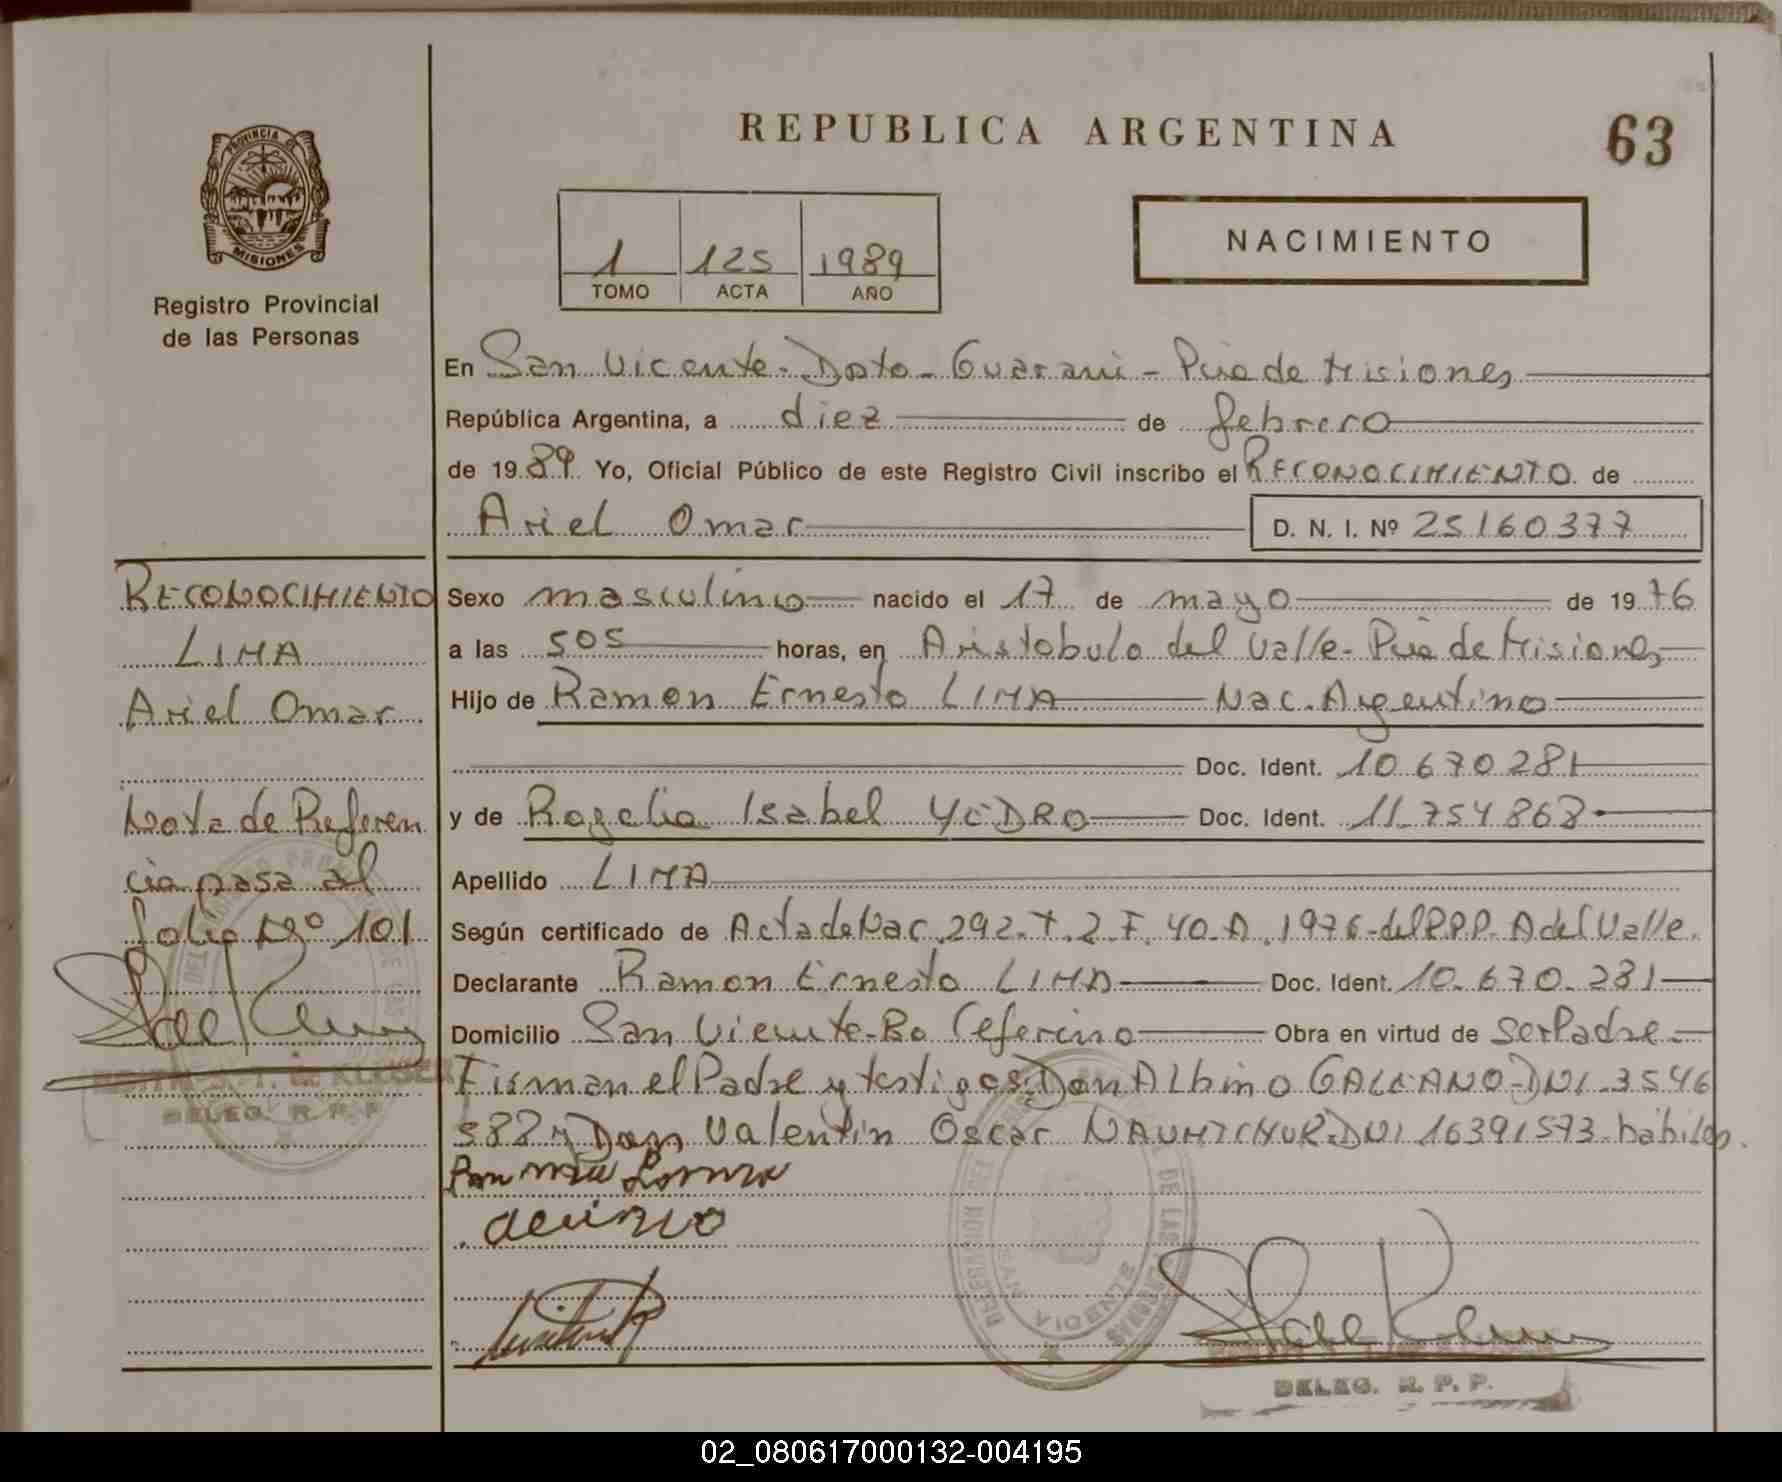 REPUBLICA ARGENTINA
63
PROVINCIA DE
MISIONES
Registro Provincial
de las Personas
1 125 1989
TOMO ACTA AÑO
NACIMIENTO
En San Vicente - Dpto - Guarani - Pcia de Misiones
República Argentina, a diez de febrero
de 1989 Yo, Oficial Público de este Registro Civil inscribo el RECONOCIMIENTO de
Ariel Omar D. N. I. Nº 25160377
Sexo masculino nacido el 17 de mayo de 1976
a las 505 horas, en Aristobulo del Valle - Pcia de Misiones
Hijo de Ramon Ernesto LIMA Nac. Argentino
Doc. Ident. 10 670 281
y de Rogelia Isabel YEDRO Doc. Ident. 11.754 868
Apellido LIMA
Según certificado de Acta de Nac. 292 - T. 2 - F. 40 - A. 1976 - del R.P.P. A del Valle.
Declarante Ramon Ernesto LIMA Doc. Ident. 10.670.281
Domicilio San Vicente - Bo Ceferino Obra en virtud de ser Padre
Firman el Padre y testigos: Don Albino GALEANO - DNI - 3546
588 y Don Valentin Oscar DNI 16391573 - habiles.
RECONOCIMIENTO
LIMA
Ariel Omar
Nota de Referen
cia pasa al
folio Nº 101
DELEG. R. P. P.
DELEGACION DEL REGISTRO PROVINCIAL DE LAS PERSONAS
SAN VICENTE
DELEG. R. P. P.
02_080617000132-004195